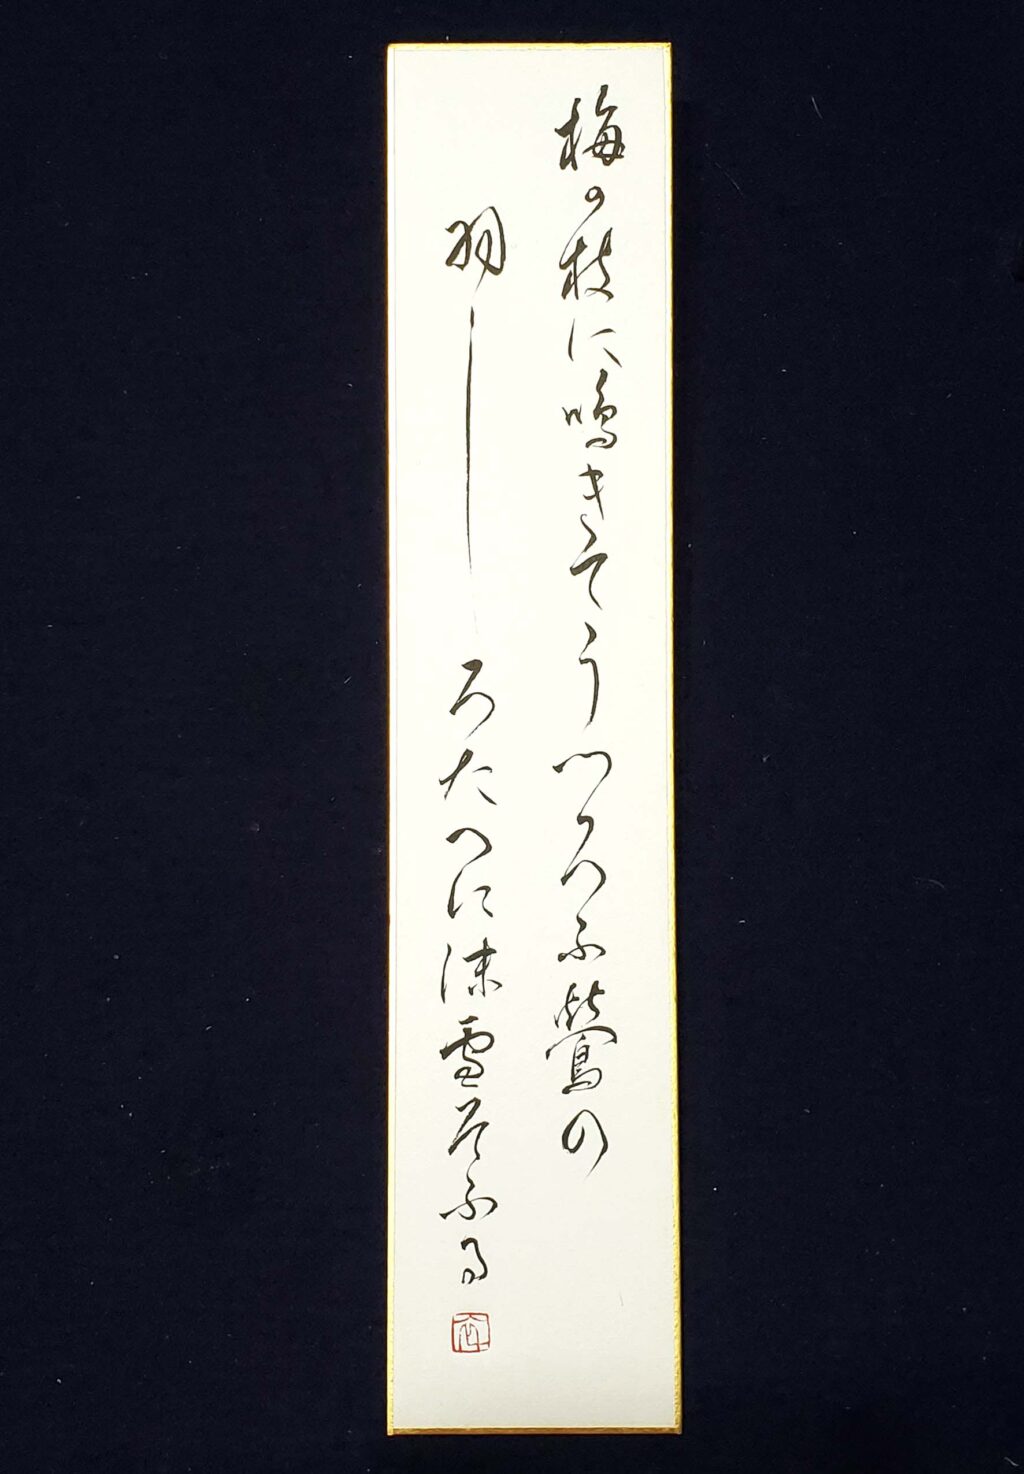 梅の枝に鳴きてうつろふ鶯の
羽しろたへに沫雪そふる